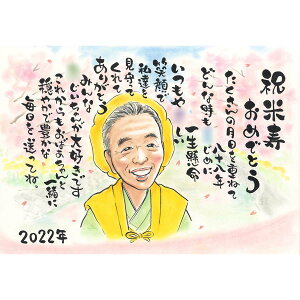 祝米寿
おめでとう
たくさんの月日を重ねて
八十八年
どんな時も
まじめに
一生懸命
いつもやさしい
笑顔で
私達を
見守って
くれて
ありがとう
みんな
じいちゃんが大好きです
これからもおばあちゃんと一緒に
穏やかで豊かな
毎日を送ってね。
2022年